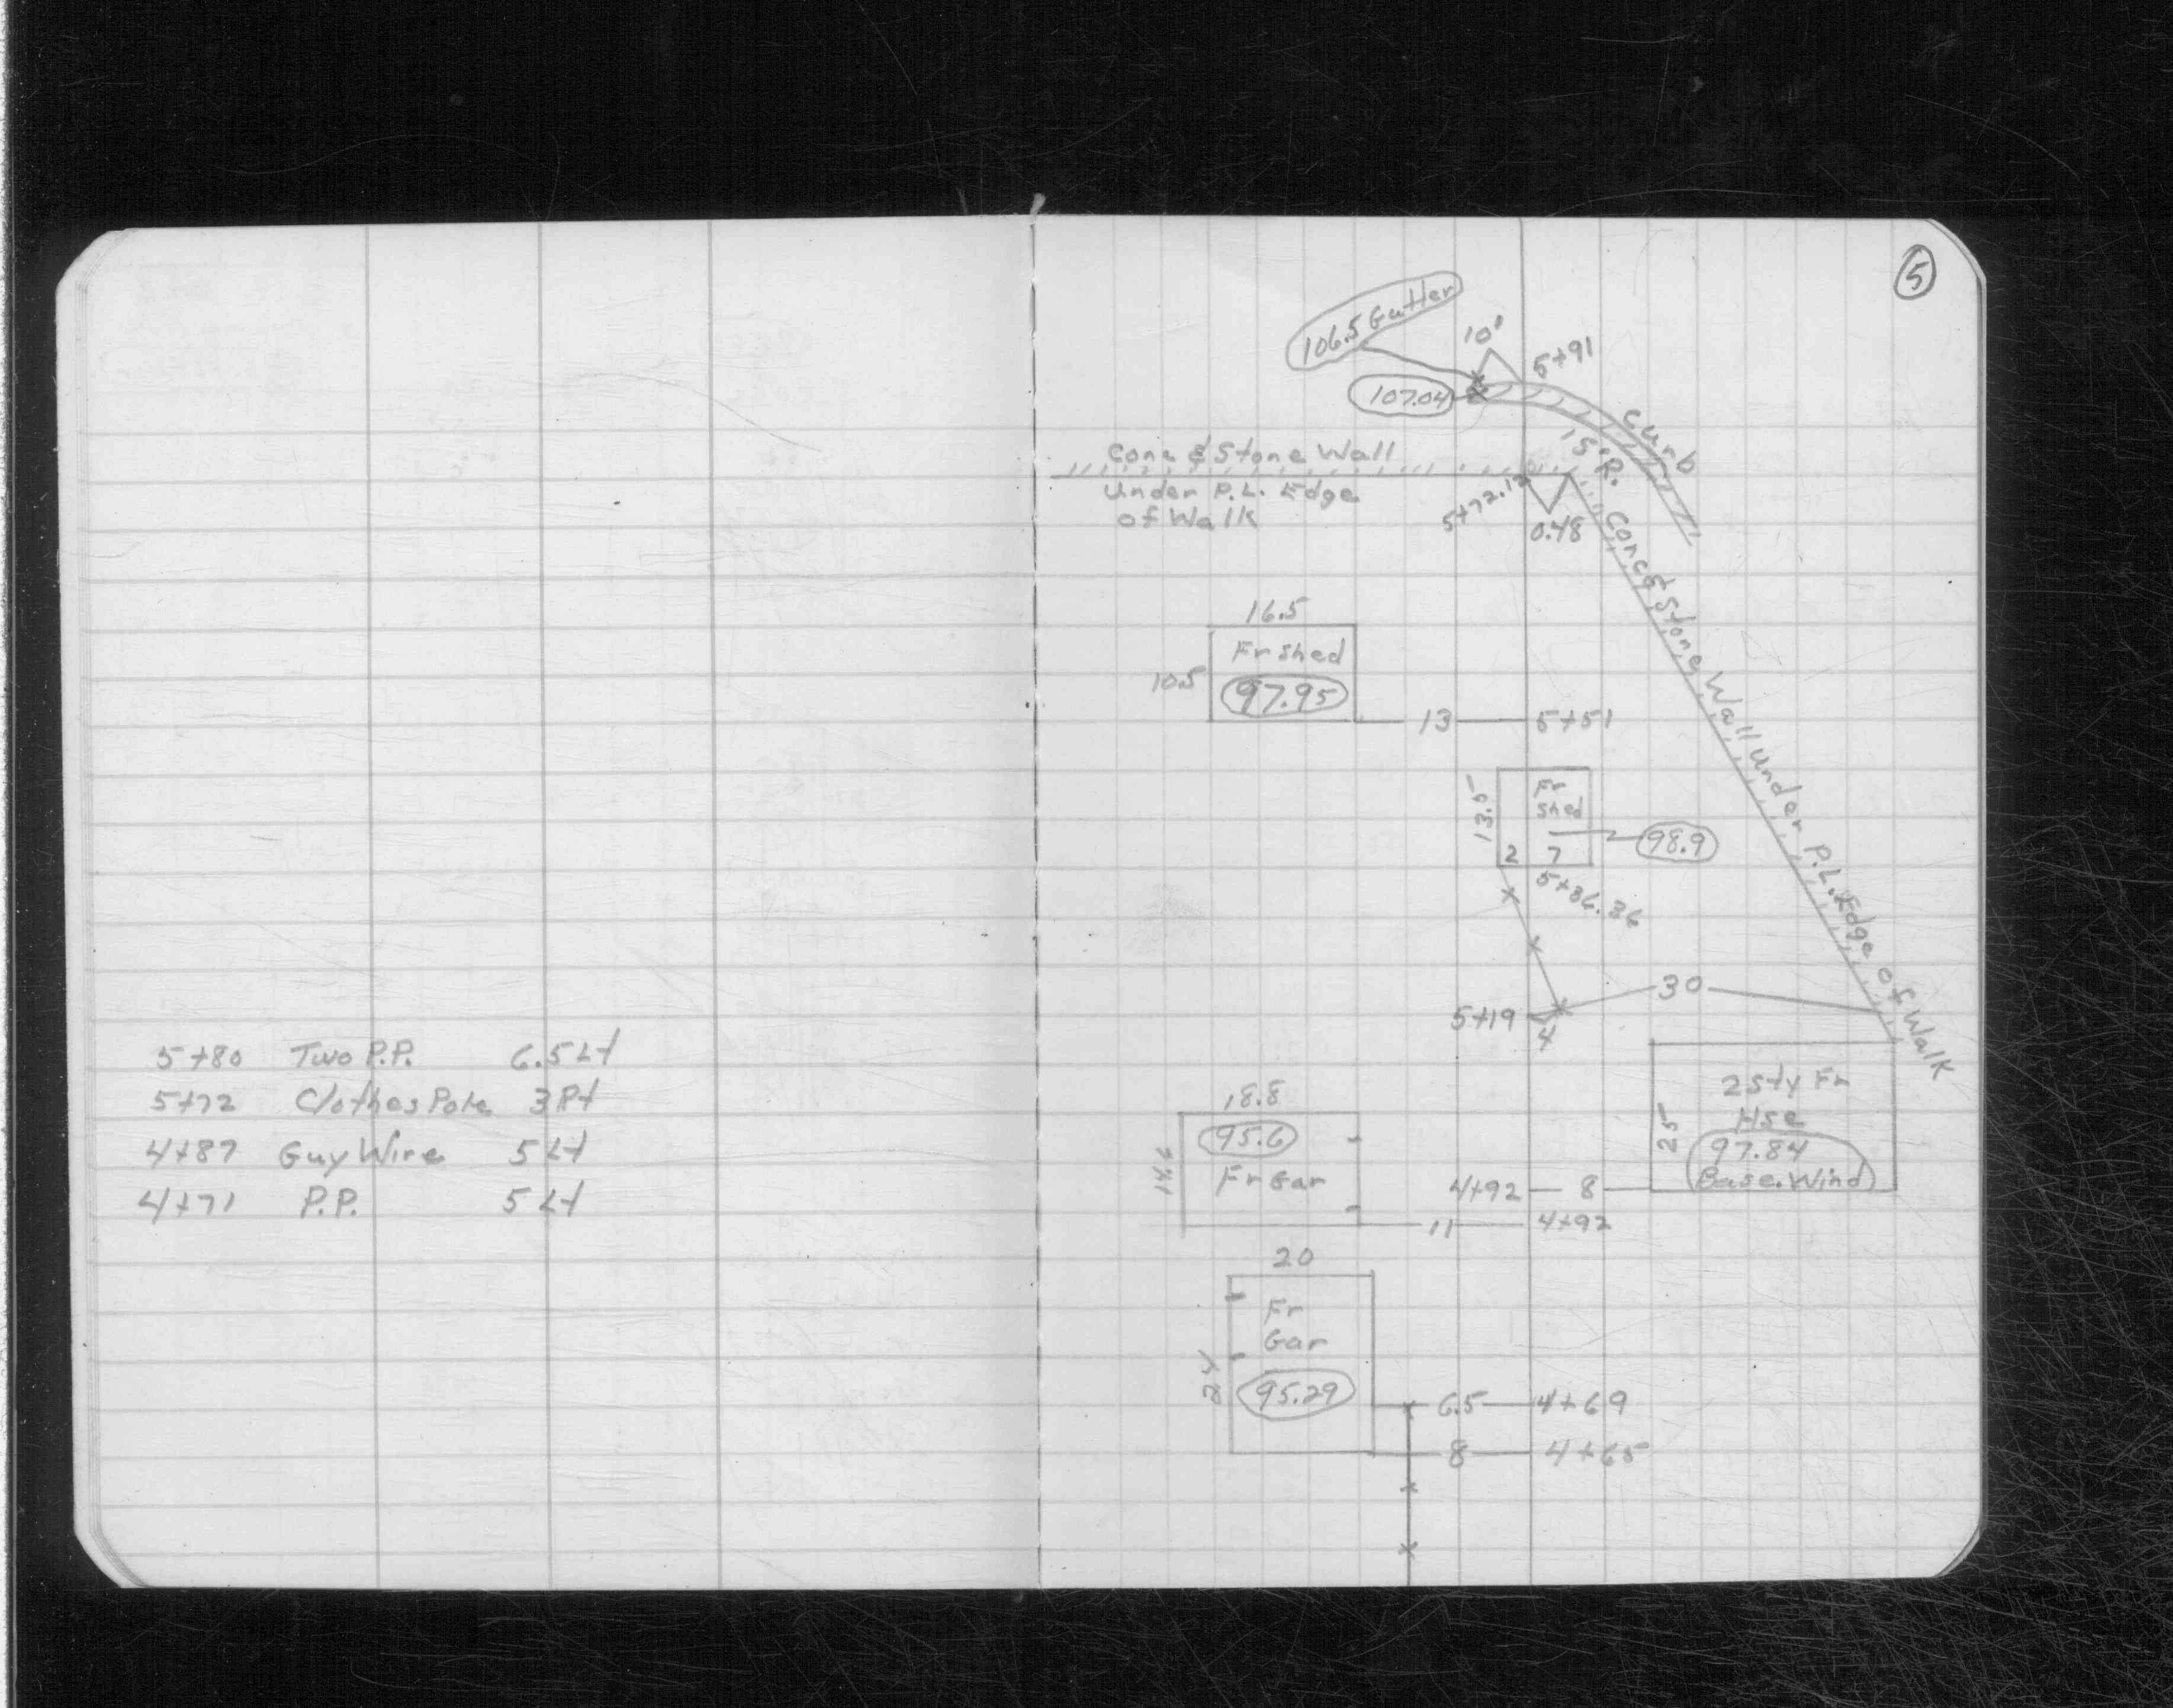 5+80 Two P.P. 6.5 Lt
5+72 Clothes Pole 3 Rt
4+87 Guy Wire 5 Lt
4+71 P.P. 5 Lt
5
106.5 Gutter
10'
5+91
107.04
Curb
15' R.
Conc & Stone Wall
Under P.L. Edge
of Walk
5+72.12
0.48
Conc & Stone Wall under P.L. Edge of Walk
16.5
Fr shed
10.5
97.95
13 5+51
13.5
Fr
shed
98.9
2 7
5+36.36
30
5+19
4
18.8
95.6
14.6
Fr Gar
2 Sty Fr
Hse
25
97.84
Base. Wind
4+92 8
11 4+92
20
Fr
Gar
24
95.29
6.5 4+69
8 4+65